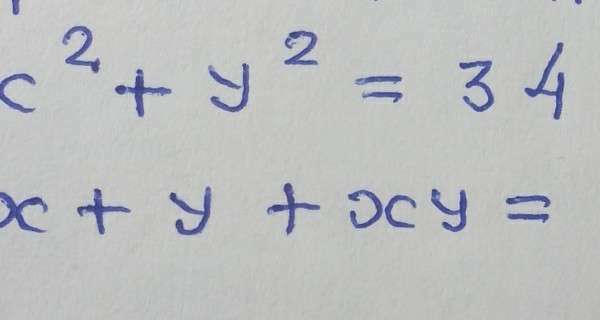 x² + y² = 34
x + y + xy =